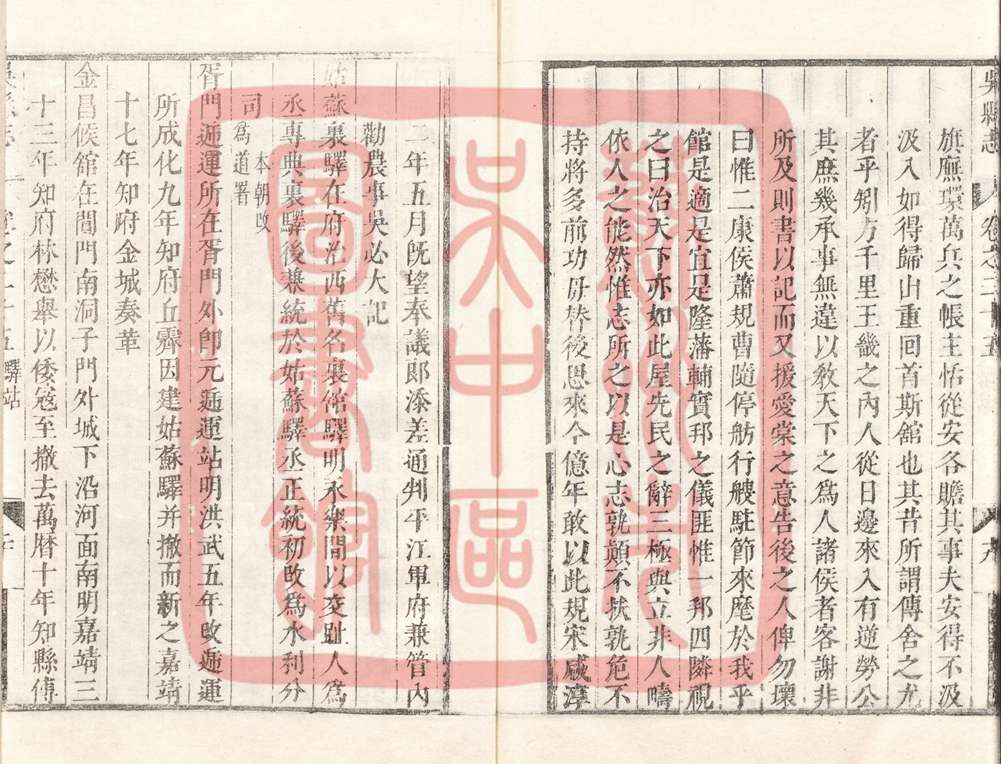 吳縣志 卷之二十五
旗廡環萬兵之帳主恬從安各贍其事夫安得不汲
汲入如得歸出重回首斯舘也其昔所謂傳舍之尤
者乎矧方千里王畿之內人從日邊來入有道勞公
其庶幾承事無違以敎天下之爲人諸侯者客謝非
所及則書以記而又援愛棠之意告後之人俾勿壞
曰惟二康侯蕭規曹隨停舫行艘駐節來麾於我乎
館是適是宜是隆藩輔實邦之儀匪惟一邦四隣視
之曰治天下亦如此屋先民之辭三極與立非人疇
依人之能然惟志所之以是心志孰顛不扶孰危不
持將多前功毋替後思來今億年敢以此規宋咸淳
二年五月旣望奉議郎添差通判平江軍府兼管內
勸農事吳必大記
姑蘇襄驛在府治西舊名襄舘驛明永樂間以交趾人爲
丞專典裏驛後兼統於姑蘇驛丞正統初改爲水利分
司 本朝改爲道署
胥門遞運所在胥門外卽元遞運站明洪武五年改遞運
所成化九年知府丘霽因建姑蘇驛并撤而新之嘉靖
十七年知府金城奏革
金昌候舘在閶門南洞子門外城下沿河面南明嘉靖三
十三年知府林懋舉以倭寇至撤去萬曆十年知縣傅
卷之二十五 驛站
蘇州市
吳中區
圖書館